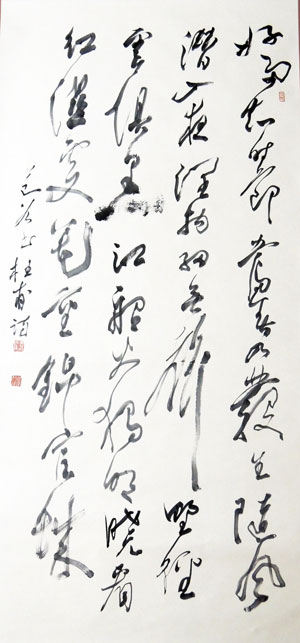 好雨知時節當春乃發生隨風
潛入夜潤物細無聲野徑
雲俱黑江船火獨明曉看
紅濕處花重錦官城
杜甫詩